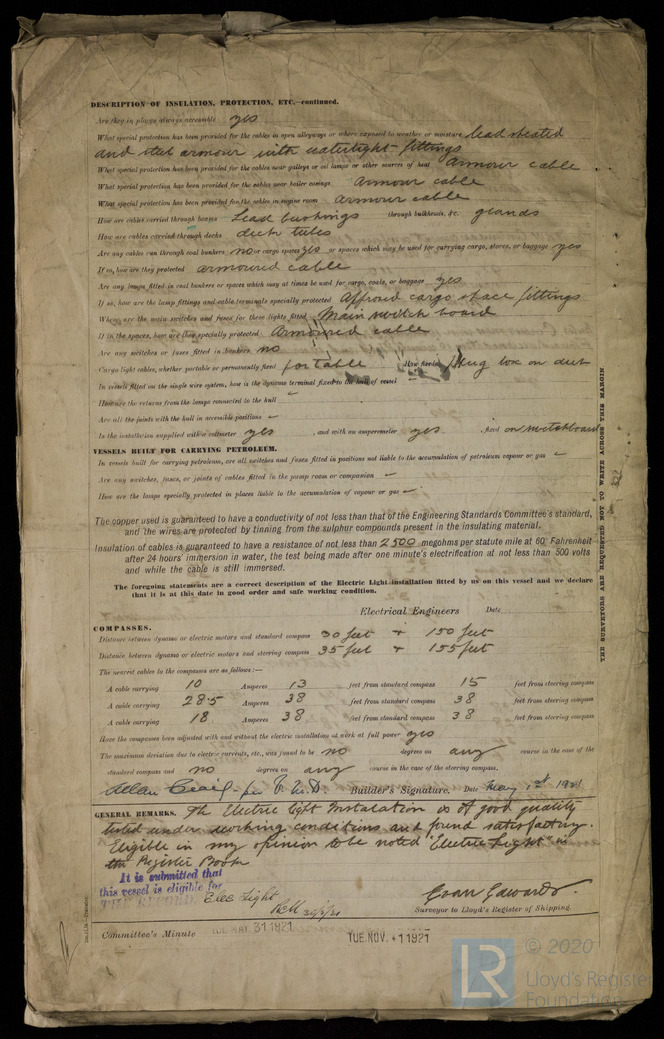 DESCRIPTION OF INSULATION, PROTECTION, ETC.—continued.
Are they in places always accessible yes
What special protection has been provided for the cables in open alleyways or where exposed to weather or moisture lead sheated
and steel armour with watertight fittings
What special protection has been provided for the cables near galleys or oil lamps or other sources of heat armour cable
What special protection has been provided for the cables near boiler casings armour cable
What special protection has been provided for the cables in engine room armour cable
How are cables carried through beams Lead bushings through bulkheads, &c. glands
How are cables carried through decks deck tubes
Are any cables run through coal bunkers no or cargo spaces yes or spaces which may be used for carrying cargo, stores, or baggage yes
If so, how are they protected armoured cable
Are any lamps fitted in coal bunkers or spaces which may at times be used for cargo, coals, or baggage yes
If so, how are the lamp fittings and cable terminals specially protected Approved cargo space fittings
Where are the main switches and fuses for these lights fitted Main switch board
If in the spaces, how are they specially protected Armoured cable
Are any switches or fuses fitted in bunkers no
Cargo light cables, whether portable or permanently fixed portable How fixed plug box on deck
In vessels fitted on the single wire system, how is the dynamo terminal fixed to the hull of vessel
How are the returns from the lamps connected to the hull
Are all the joints with the hull in accessible positions
Is the installation supplied with a voltmeter yes , and with an amperemeter yes , fixed on switchboard
VESSELS BUILT FOR CARRYING PETROLEUM.
In vessels built for carrying petroleum, are all switches and fuses fitted in positions not liable to the accumulation of petroleum vapour or gas
Are any switches, fuses, or joints of cables fitted in the pump room or companion
How are the lamps specially protected in places liable to the accumulation of vapour or gas
The copper used is guaranteed to have a conductivity of not less than that of the Engineering Standards Committee's standard,
and the wires are protected by tinning from the sulphur compounds present in the insulating material.
Insulation of cables is guaranteed to have a resistance of not less than 2500 megohms per statute mile at 60° Fahrenheit
after 24 hours' immersion in water, the test being made after one minute's electrification at not less than 500 volts
and while the cable is still immersed.
The foregoing statements are a correct description of the Electric Light installation fitted by us on this vessel and we declare
that it is at this date in good order and safe working condition.
Electrical Engineers Date
COMPASSES.
Distance between dynamo or electric motors and standard compass 30 feet + 150 feet
Distance between dynamo or electric motors and steering compass 35 feet + 155 feet
The nearest cables to the compasses are as follows:—
A cable carrying 10 Amperes 13 feet from standard compass 15 feet from steering compass
A cable carrying 28.5 Amperes 38 feet from standard compass 38 feet from steering compass
A cable carrying 18 Amperes 38 feet from standard compass 38 feet from steering compass
Have the compasses been adjusted with and without the electric installation at work at full power yes
The maximum deviation due to electric currents, etc., was found to be no degrees on any course in the case of the
standard compass and no degrees on any course in the case of the steering compass.
Allan Craig Builder's Signature. Date May 1st 1921
GENERAL REMARKS. The Electric Light Instalation is of good quality
tested under working conditions and found satisfactory.
Eligible in my opinion to be noted "Electric Light" in
the Register Book
It is submitted that
this vessel is eligible for
THE RECORD. Elec Light
Evan Edwards.
Surveyor to Lloyd's Register of Shipping.
Committee's Minute TUE. MAY. 31 1921 TUE. NOV. 1 1921
THE SURVEYORS ARE REQUESTED NOT TO WRITE ACROSS THIS MARGIN
© 2020
Lloyd's Register
Foundation
LR